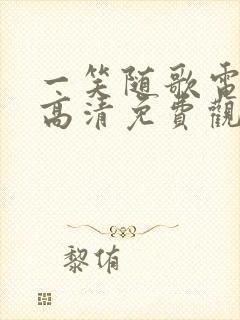 一笑随歌電
高清免費觀
黎侑